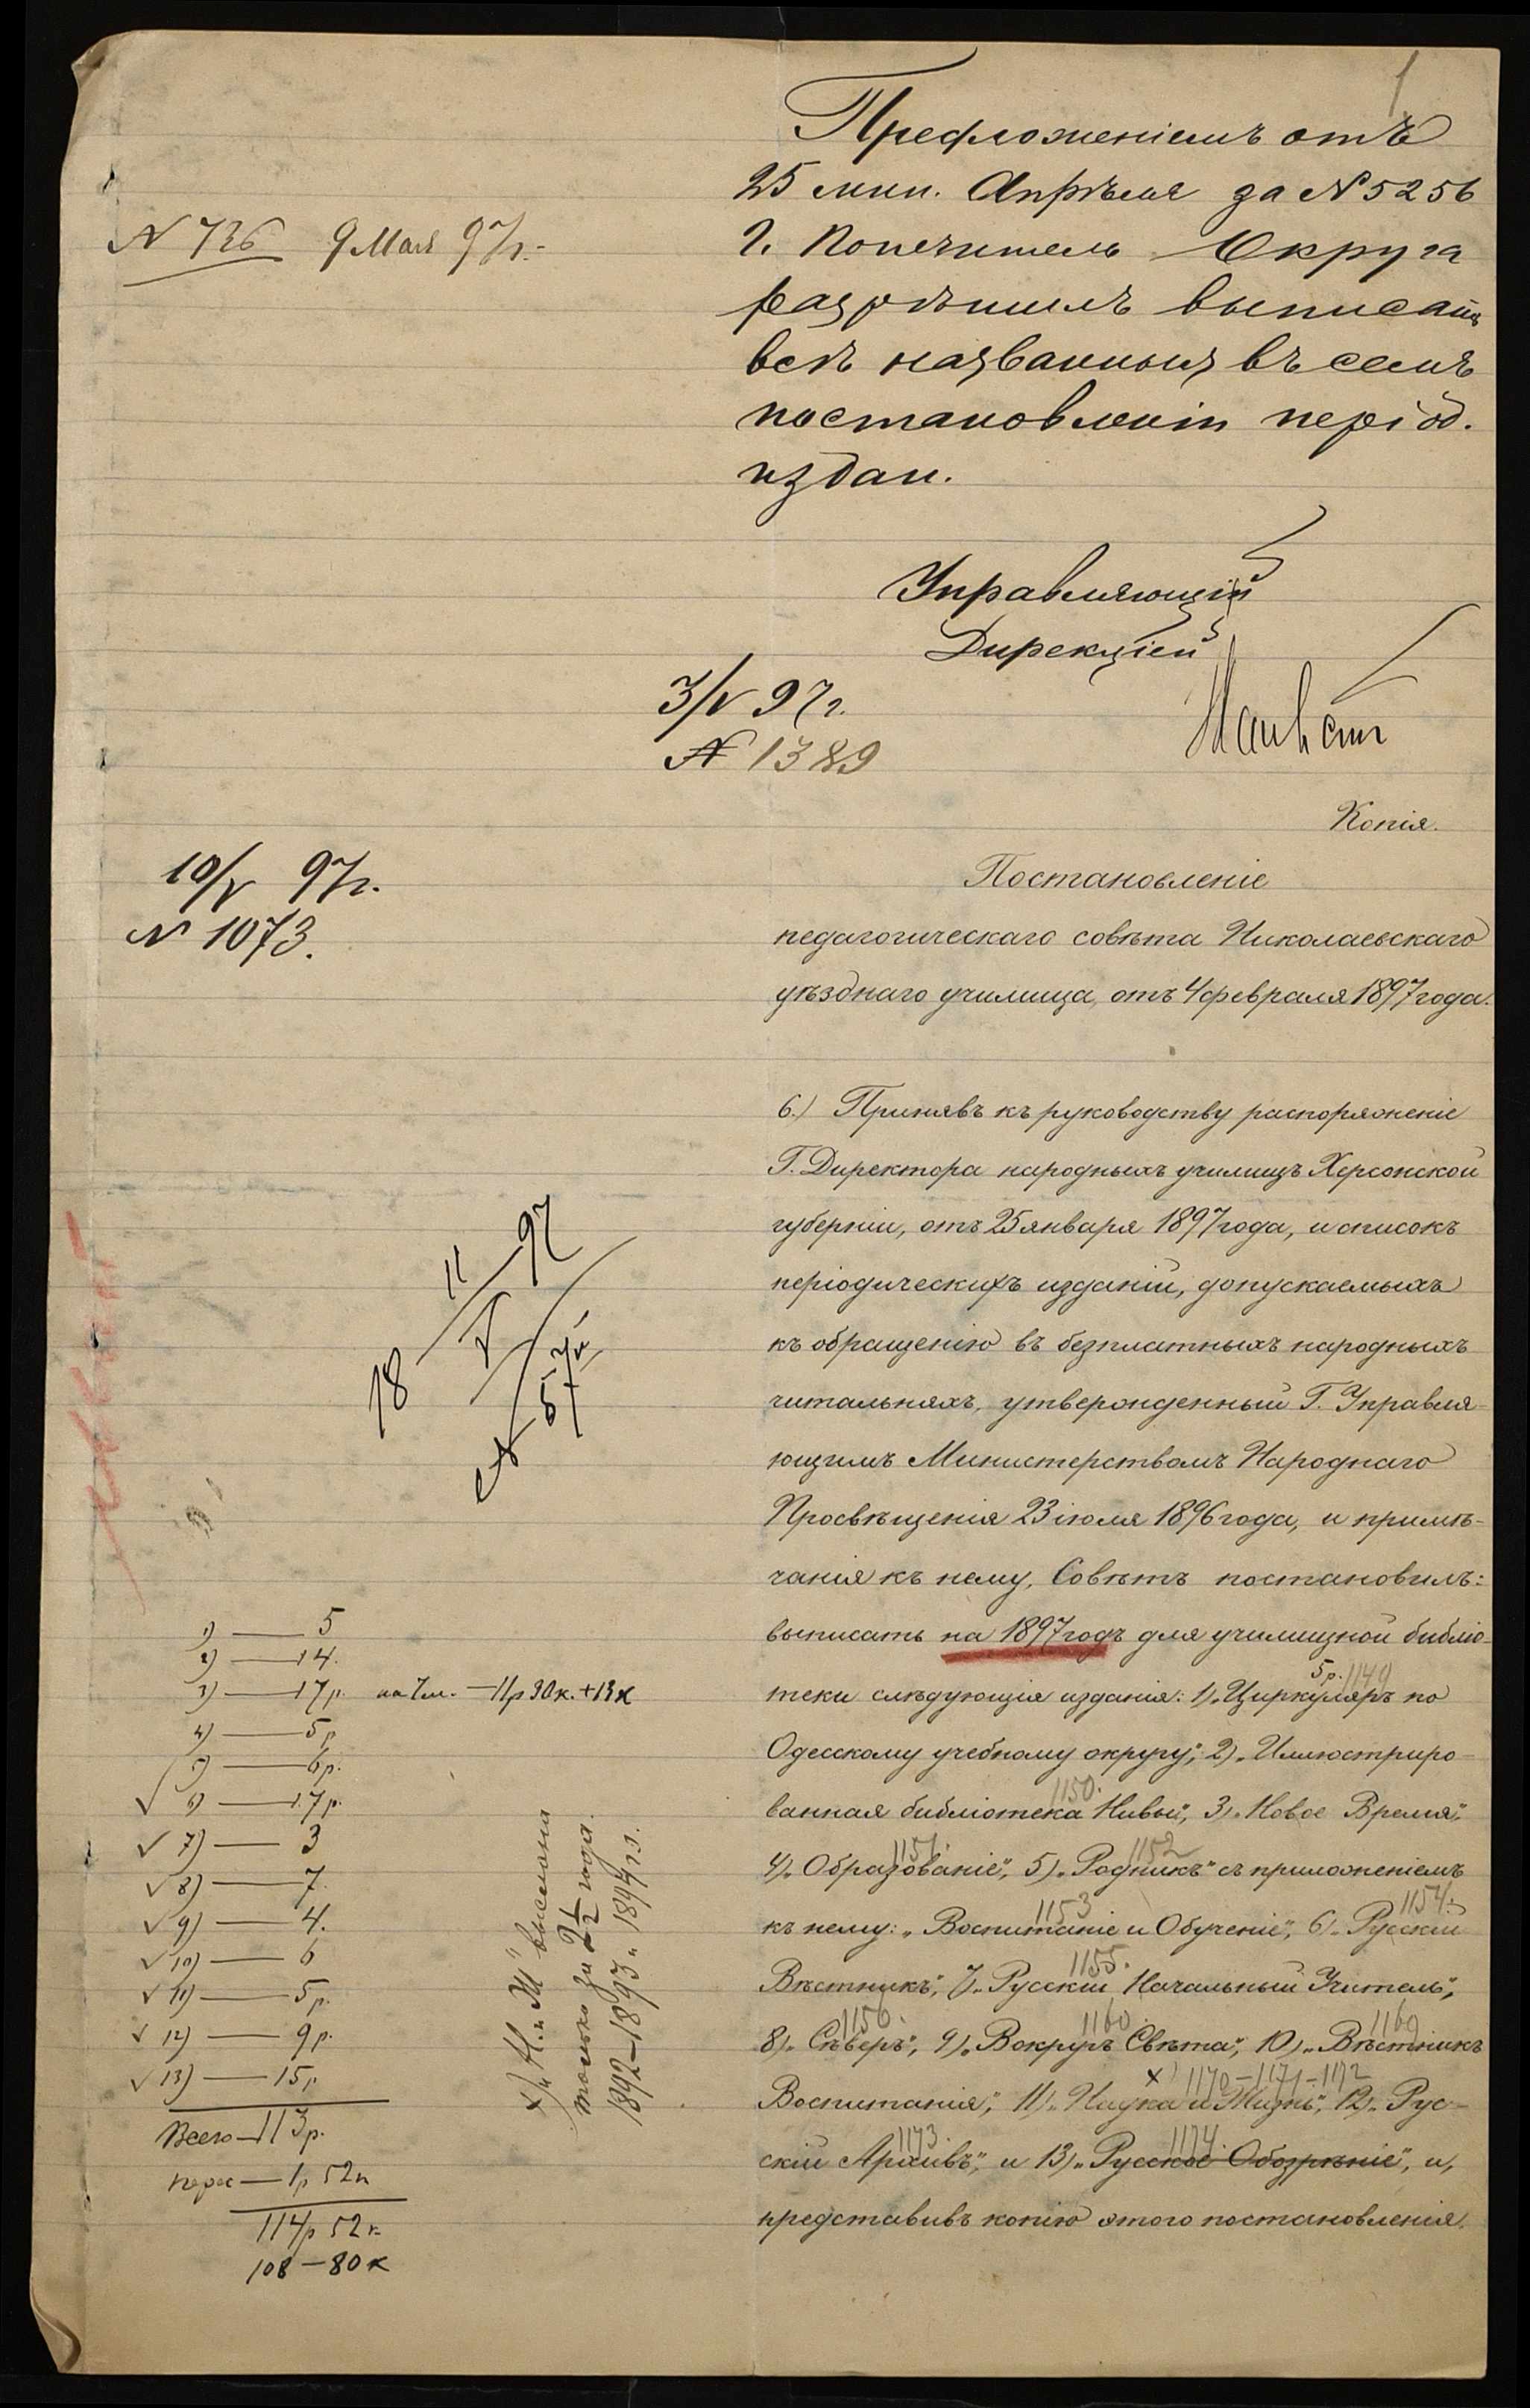 1
Предложеніемъ отъ
25 мин. Апрѣля за № 5256
Г. Попечитель Округа
разрѣшилъ выписать
всѣ названныя въ семъ
постановленіи період.
издан.
Управляющій
Дирекціей
3/V 97 г.
№ 1389
№ 736 9 Мая 97 г.
10/V 97 г.
№ 1073.
Копія.
Постановленіе
педагогическаго совѣта Николаевскаго
уѣзднаго училища, отъ 4 февраля 1897 года.
6.) Принявъ къ руководству распоряженіе
Г. Директора народныхъ училищъ Херсонской
губерніи, отъ 25 января 1897 года, и списокъ
періодическихъ изданій, допускаемыхъ
къ обращенію въ безплатныхъ народныхъ
читальняхъ, утвержденный Г. Управля-
ющимъ Министерствомъ Народнаго
Просвѣщенія 23 іюля 1896 года, и примѣ-
чанія къ нему, Совѣтъ постановилъ:
выписать на 1897 годъ для училищной библіо-
5 р. 1149
теки слѣдующія изданія: 1) „Циркуляръ по
Одесскому учебному округу“, 2) „Иллюстриро-
1150.
ванная библіотека Нивы“, 3) „Новое Время“,
1151. 1152
4) „Образованіе“, 5) „Родникъ“ съ приложеніемъ
1153 1154.
къ нему: „Воспитаніе и Обученіе“, 6) „Русскій
1155.
Вѣстникъ“, 7) „Русскій Начальный Учитель“,
1156. 1160 1169
8) „Сѣверъ“, 9) „Вокругъ Свѣта“, 10) „Вѣстникъ
х) 1170-1171-1172
Воспитанія“, 11) „Наука и Жизнь“, 12) „Рус-
1173. 1174.
скій Архивъ“ и 13) „Русское Обозрѣніе“, и,
представивъ копію этого постановленія
18 11/V 97
№ 57
1) — 5
2) — 14.
3) — 17 р. на 7 м. — 11 р 30 к. + 13 к
4) — 5 р
5) — 6 р.
√ 6) — 17 р.
√ 7) — 3
√ 8) — 7.
√ 9) — 4.
√ 10) — 6
√ 11) — 5 р.
√ 12) — 9 р.
√ 13) — 15 р
Всего — 113 р.
перес — 1 р 52 к
114 р 52 к
108 — 80 к
х) „Н. и Ж“ выслана
только за 2 1/2 года
1892-1893 и 1894 г.г.